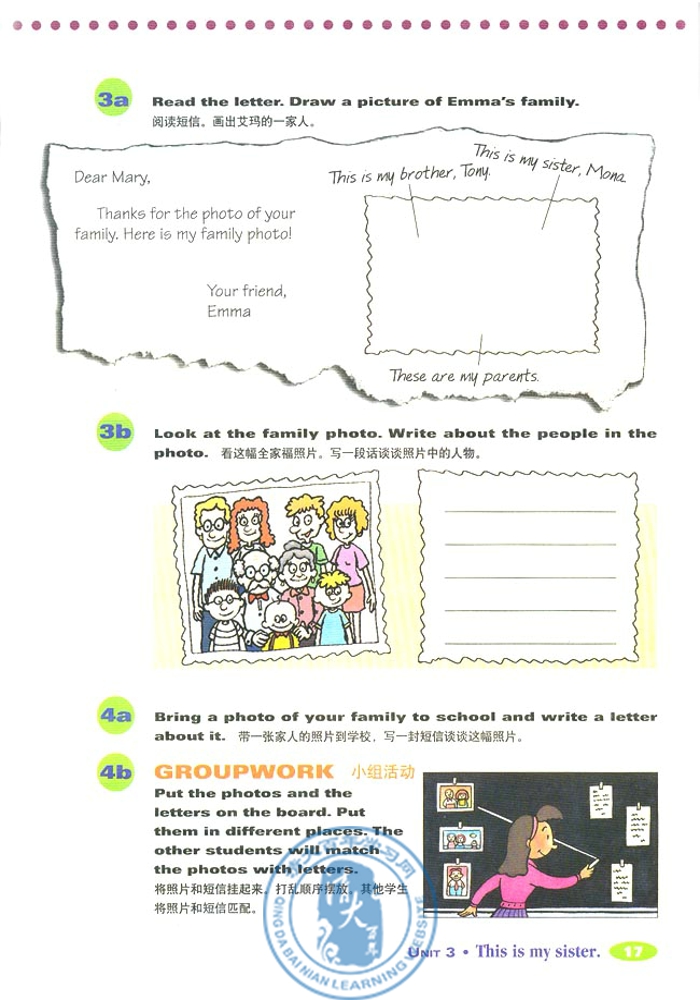 3a Read the letter. Draw a picture of Emma's family.
阅读短信。画出艾玛的一家人。
Dear Mary,
Thanks for the photo of your
family. Here is my family photo!
Your friend,
Emma
This is my brother, Tony.
This is my sister, Mona.
These are my parents.
3b Look at the family photo. Write about the people in the
photo. 看这幅全家福照片。写一段话谈谈照片中的人物。
4a Bring a photo of your family to school and write a letter
about it. 带一张家人的照片到学校，写一封短信谈谈这幅照片。
4b GROUPWORK 小组活动
Put the photos and the
letters on the board. Put
them in different places. The
other students will match
the photos with letters.
将照片和短信挂起来，打乱顺序摆放。其他学生
将照片和短信匹配。
QING DA BAI NIAN LEARNING WEBSITE
UNIT 3 • This is my sister. 17